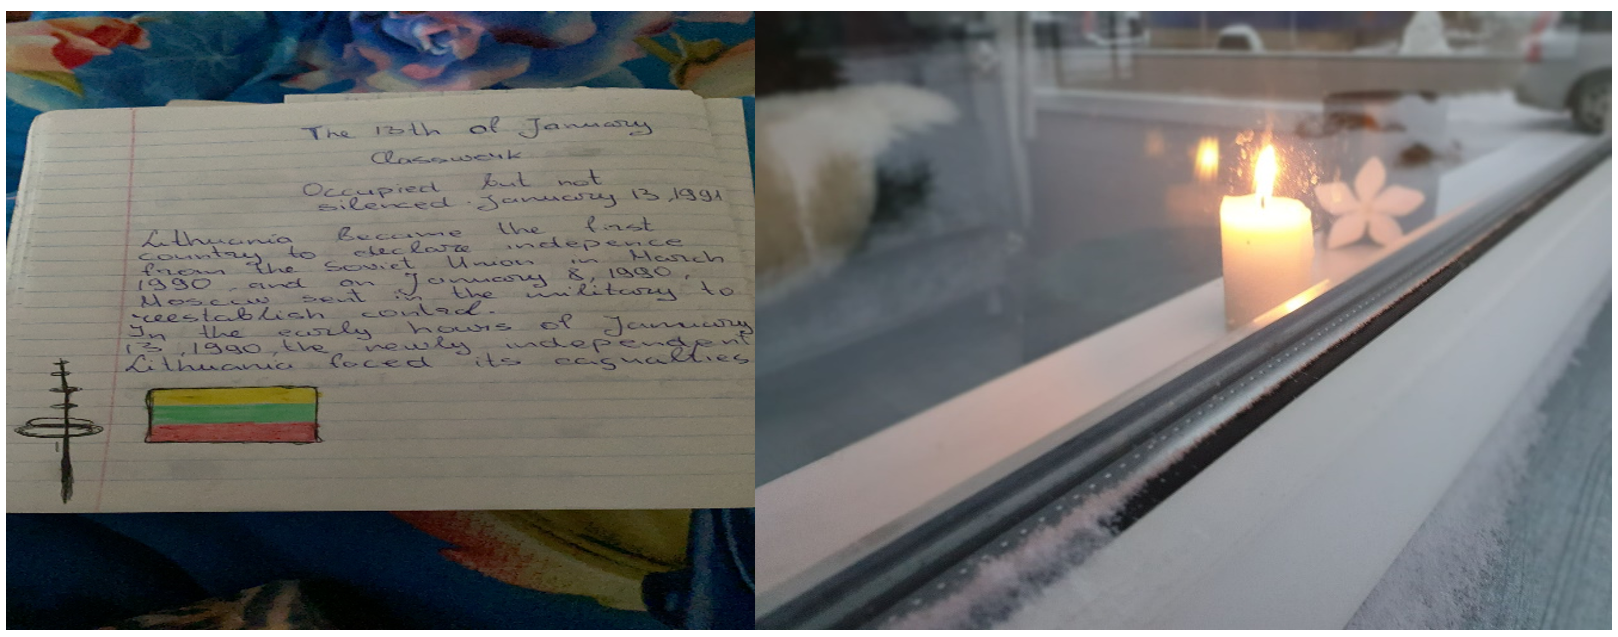 The 13th of January
Classwork
Occupied but not
silenced. January 13, 1991
Lithuania became the first
country to declare indepence
from the Soviet Union in March
1990 and on January 8, 1990,
Moscow sent in the military to
reestablish control.
In the early hours of January
13, 1990, the newly independent
Lithuania faced its casualties